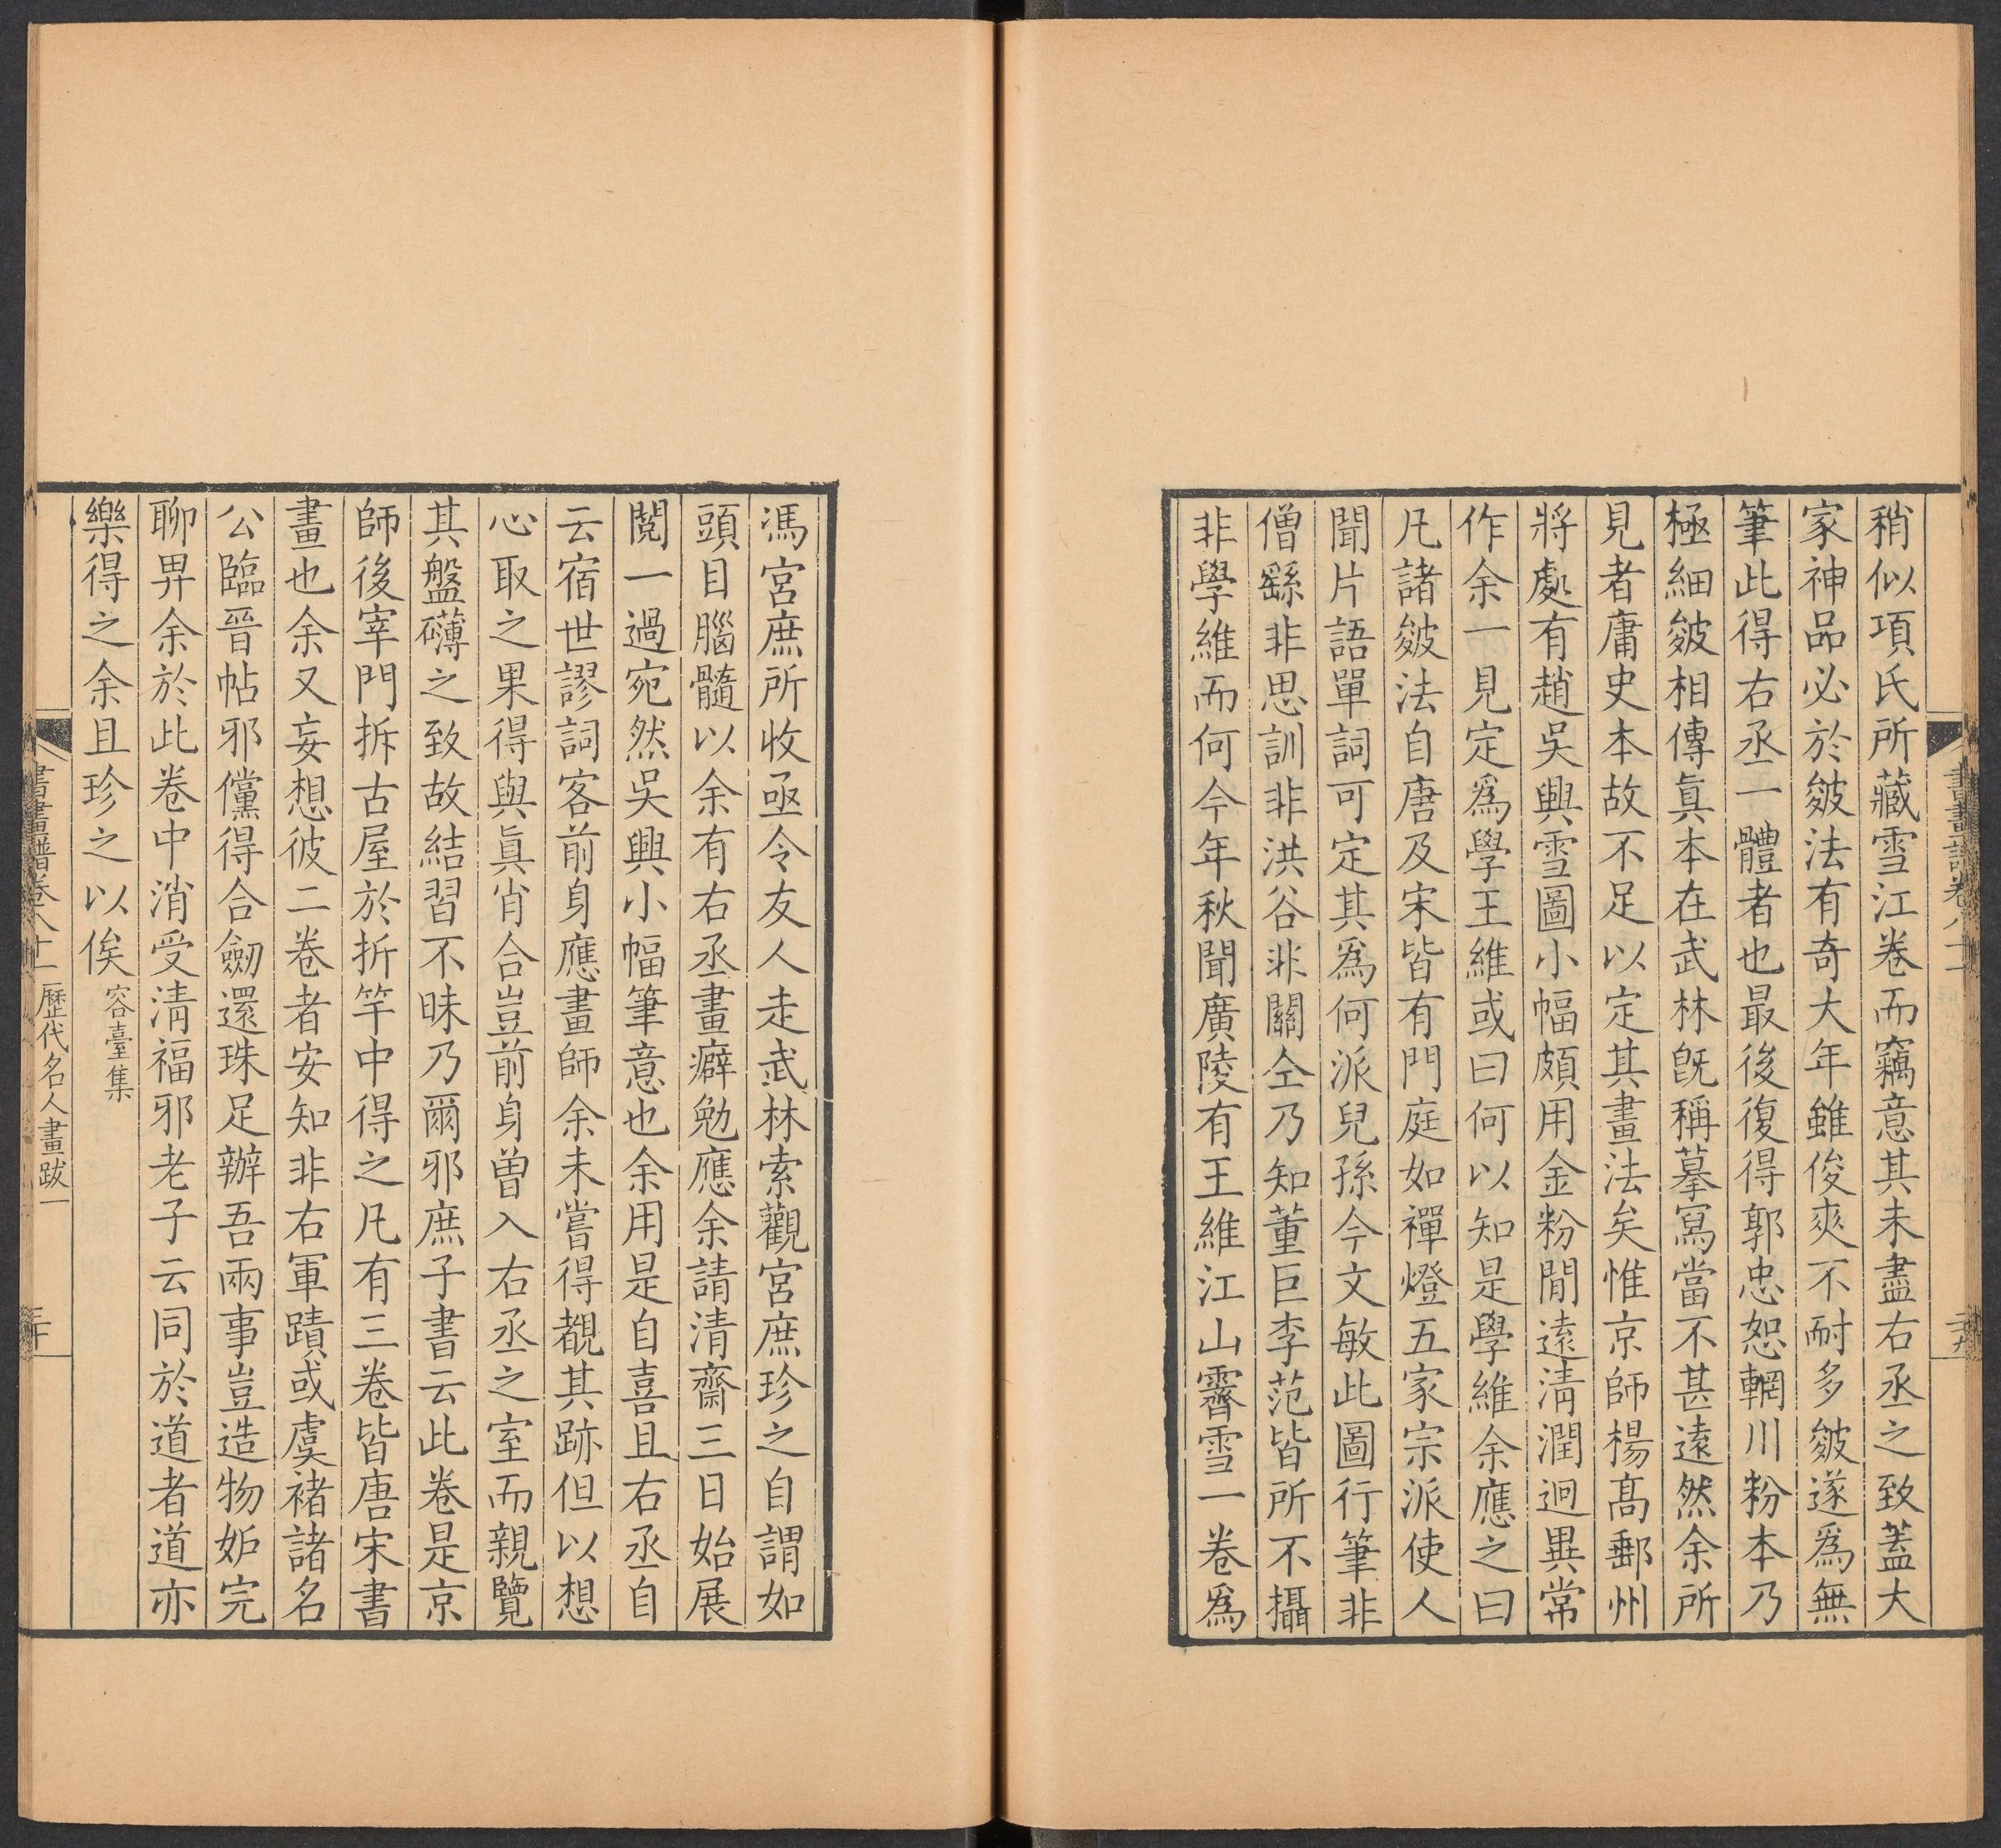 稍似項氏所藏雪江卷而竊意其未盡右丞之致蓋大
家神品必於皴法有奇大年雖俊爽不耐多皴遂爲無
筆此得右丞一體者也最後復得郭忠恕輞川粉本乃
極細皴相傳眞本在武林旣稱摹寫當不甚遠然余所
見者庸史本故不足以定其畫法矣惟京師楊高郵州
將處有趙吳興雪圖小幅頗用金粉閒遠淸潤迥異常
作余一見定爲學王維或曰何以知是學維余應之曰
凡諸皴法自唐及宋皆有門庭如禪燈五家宗派使人
聞片語單詞可定其爲何派兒孫今文敏此圖行筆非
僧繇非思訓非洪谷非關仝乃知董巨李范皆所不攝
非學維而何今年秋聞廣陵有王維江山霽雪一卷爲
馮宮庶所收亟令友人走武林索觀宮庶珍之自謂如
頭目腦髓以余有右丞畫癖勉應余請清齋三日始展
閱一過宛然吳興小幅筆意也余用是自喜且右丞自
云宿世謬詞客前身應畫師余未嘗得覩其跡但以想
心取之果得與眞肖合豈前身曾入右丞之室而親覽
其盤礴之致故結習不昧乃爾邪庶子書云此卷是京
師後宰門拆古屋於折竿中得之凡有三卷皆唐宋書
畫也余又妄想彼二卷者安知非右軍蹟或虞褚諸名
公臨晉帖邪儻得合劒還珠足辦吾兩事豈造物妒完
聊畀余於此卷中消受淸福邪老子云同於道者道亦
樂得之余且珍之以俟 容臺集
書畫譜卷八十一 歷代名人畫跋一 三十